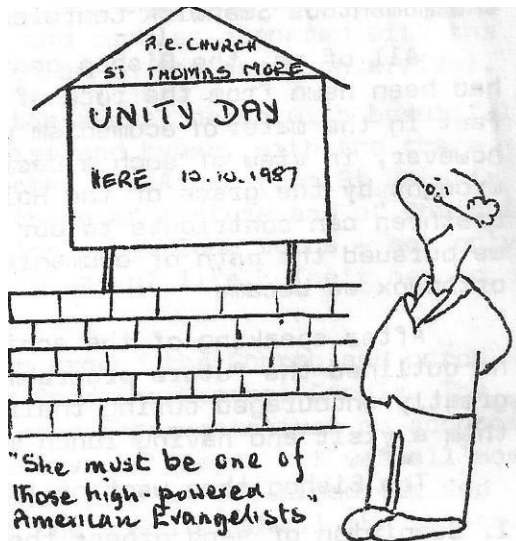 R.C. CHURCH
St THOMAS MORE
UNITY DAY
HERE 10.10.1987
"She must be one of
those high-powered
American Evangelists"